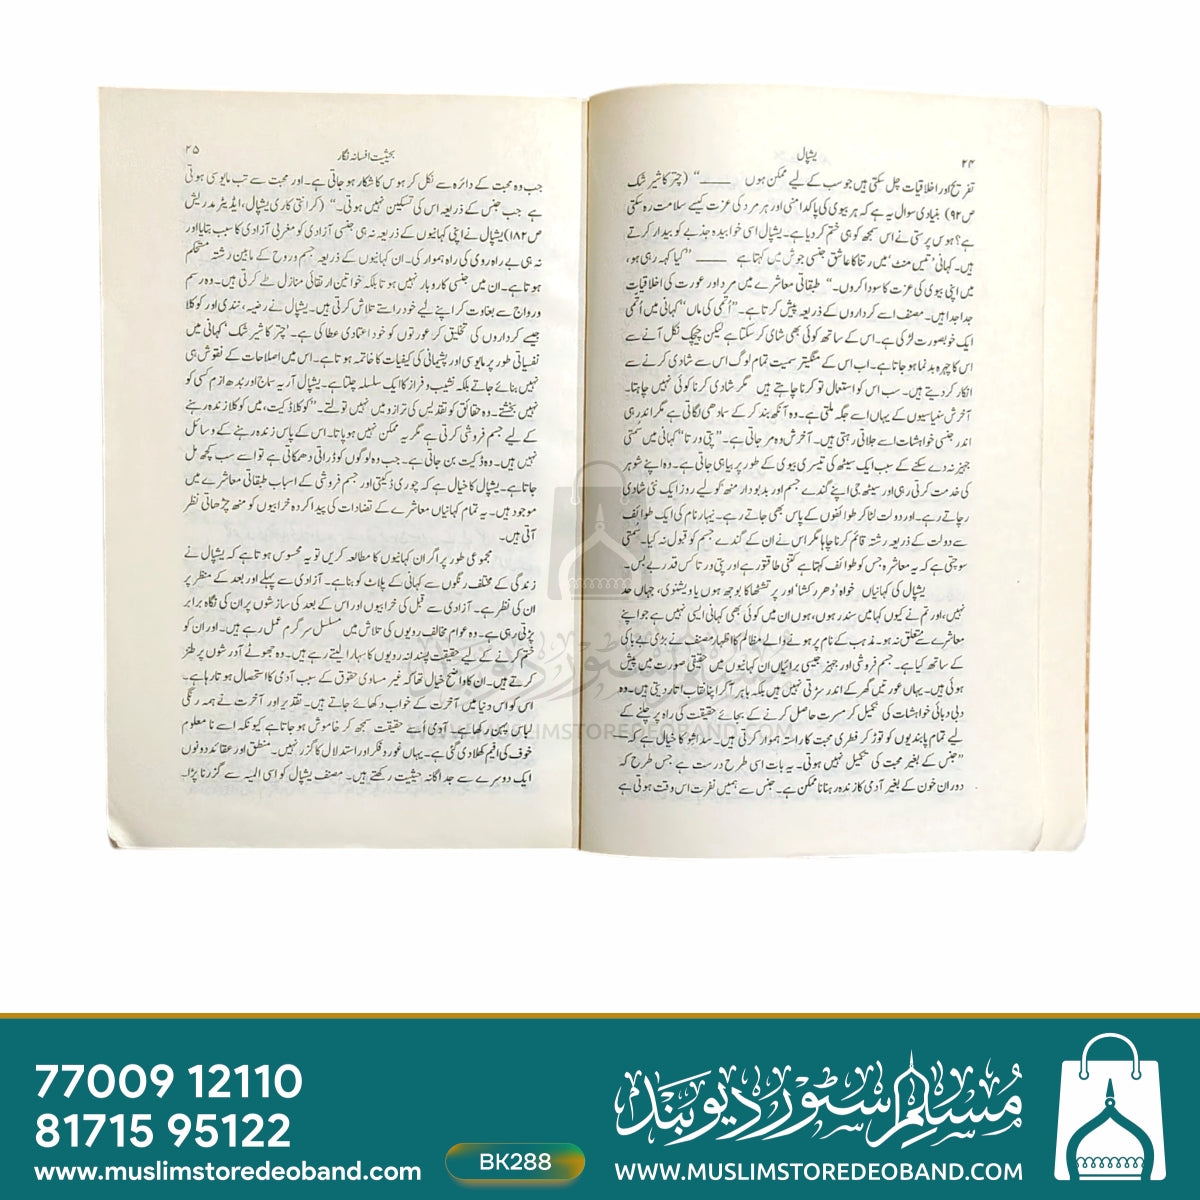 ۲۴
یشپال
تفریح اور اخلاقیات چل سکتی ہیں جو سب کے لیے ممکن ہوں ——" (چتر کا شیر شک
ص ۹۲) بنیادی سوال یہ ہے کہ ہر بیوی کی پاکدامنی اور ہر مرد کی عزت کیسے سلامت رہ سکتی
ہے؟ ہوس پرستی نے اس سمجھ کو ہی ختم کر دیا ہے۔ یشپال اسی خوابیدہ جذبے کو بیدار کرتے
ہیں۔ کہانی 'تیس منٹ' میں رتنا کا عاشق جنسی جوش میں کہتا ہے —— "کیا کہہ رہی ہو،
میں اپنی بیوی کی عزت کا سودا کروں۔" طبقاتی معاشرے میں مرد اور عورت کی اخلاقیات
جدا جدا ہیں۔ مصنف اسے کرداروں کے ذریعہ پیش کرتا ہے۔ "اُتمی کی ماں" کہانی میں اُتمی
ایک خوبصورت لڑکی ہے۔ اس کے ساتھ کوئی بھی شادی کر سکتا ہے لیکن چیچک نکل آنے سے
اس کا چہرہ بدنما ہو جاتا ہے۔ اب اس کے منگیتر سمیت تمام لوگ اس سے شادی کرنے سے
انکار کر دیتے ہیں۔ سب اس کو استعمال تو کرنا چاہتے ہیں مگر شادی کرنا کوئی نہیں چاہتا۔
آخرش سنیاسیوں کے یہاں اسے جگہ ملتی ہے۔ وہ آنکھ بند کر کے سمادھی لگاتی ہے مگر اندر ہی
اندر جنسی خواہشات اسے جلاتی رہتی ہیں۔ آخرش وہ مر جاتی ہے۔ "پتی ورتا" کہانی میں سُمتی
جہیز نہ دے سکنے کے سبب ایک سیٹھ کی تیسری بیوی کے طور پر بیاہی جاتی ہے۔ وہ اپنے شوہر
کی خدمت کرتی رہی اور سیٹھ جی اپنے گندے جسم اور بدبودار منھ کو لیے روز ایک نئی شادی
رچاتے رہے۔ اور دولت لٹا کر طوائفوں کے پاس بھی جاتے رہے۔ نیہار نام کی ایک طوائف
سے دولت کے ذریعہ رشتہ قائم کرنا چاہا مگر اس نے ان کے گندے جسم کو قبول نہ کیا۔ سُمتی
سوچتی ہے کہ یہ معاشرہ جس کو طوائف کہتا ہے کتنی طاقتور ہے اور پتی ورتا کس قدر بے بس۔
یشپال کی کہانیاں خواہ 'دھر رکشا' اور پرتشٹھا کا بوجھ ہوں یا ویشنوی، جہاں حد
نہیں، اور تم نے کیوں کہا میں سندر ہوں، ہوں ان میں کوئی بھی کہانی ایسی نہیں ہے جو اپنے
معاشرے سے متعلق نہ ہو۔ مذہب کے نام پر ہونے والے مظالم کا اظہار مصنف نے بڑی بے باکی
کے ساتھ کیا ہے۔ جسم فروشی اور جہیز جیسی برائیاں ان کہانیوں میں حقیقی صورت میں پیش
ہوئی ہیں۔ یہاں عورتیں گھر کے اندر سڑتی نہیں ہیں بلکہ باہر آ کر اپنا نقاب اتار دیتی ہیں۔ وہ
دبی دبائی خواہشات کی تکمیل کر مسرت حاصل کرنے کے بجائے حقیقت کی راہ پر چلنے کے
لیے تمام پابندیوں کو توڑ کر فطری محبت کا راستہ ہموار کرتی ہیں۔ سداشو کا خیال ہے کہ ——
"جنس کے بغیر محبت کی تکمیل نہیں ہوتی۔ یہ بات اسی طرح درست ہے جس طرح کہ
دوران خون کے بغیر آدمی کا زندہ رہنا ناممکن ہے۔ جنس سے ہمیں نفرت اس وقت ہوتی ہے
بحیثیت افسانہ نگار
۲۵
جب وہ محبت کے دائرہ سے نکل کر ہوس کا شکار ہو جاتی ہے۔ اور محبت سے تب مایوسی ہوتی
ہے جب جنس کے ذریعہ اس کی تسکین نہیں ہوتی۔" (کرانتی کاری یشپال، ایڈیٹر مدریش
ص ۱۸۲) یشپال نے اپنی کہانیوں کے ذریعہ نہ ہی جنسی آزادی کو مغربی آزادی کا سبب بتایا اور
نہ ہی بے راہ روی کی راہ ہموار کی۔ ان کہانیوں کے ذریعہ جسم و روح کے مابین رشتہ مستحکم
ہوتا ہے۔ ان میں جنسی کاروبار نہیں ہوتا بلکہ خواتین ارتقائی منازل طے کرتی ہیں۔ وہ رسم
و رواج سے بغاوت کر اپنے لیے خود راستے تلاش کرتی ہیں۔ یشپال نے رضیہ، نندی اور کوکلا
جیسے کرداروں کی تخلیق کر عورتوں کو خود اعتمادی عطا کی ہے۔ 'چتر کا شیر شک' کہانی میں
نفسیاتی طور پر مایوسی اور پشیمانی کی کیفیات کا خاتمہ ہوتا ہے۔ اس میں اصلاحات کے نقوش ہی
نہیں بنائے جاتے بلکہ نشیب و فراز کا ایک سلسلہ چلتا ہے۔ یشپال آریہ سماج اور بدھ ازم کسی کو
نہیں بخشتے۔ وہ حقائق کو تقدیس کی ترازو میں نہیں تولتے۔ "کوکلا ڈکیت، میں کوکلا زندہ رہنے
کے لیے جسم فروشی کرتی ہے مگر یہ ممکن نہیں ہو پاتا۔ اس کے پاس زندہ رہنے کے وسائل
نہیں ہیں۔ وہ ڈکیت بن جاتی ہے۔ جب وہ لوگوں کو ڈراتی دھمکاتی ہے تو اسے سب کچھ مل
جاتا ہے۔ یشپال کا خیال ہے کہ چوری ڈکیتی اور جسم فروشی کے اسباب طبقاتی معاشرے میں
موجود ہیں۔ یہ تمام کہانیاں معاشرے کے تضادات کی پیدا کردہ خرابیوں کو منھ چڑھاتی نظر
آتی ہیں۔
مجموعی طور پر اگر ان کہانیوں کا مطالعہ کریں تو یہ محسوس ہوتا ہے کہ یشپال نے
زندگی کے مختلف رنگوں سے کہانی کے پلاٹ کو بنا ہے۔ آزادی سے پہلے اور بعد کے منظر پر
ان کی نظر ہے۔ آزادی سے قبل کی خرابیوں اور اس کے بعد کی سازشوں پر ان کی نگاہ برابر
پڑتی رہی ہے۔ وہ عوام مخالف رویوں کی تلاش میں مسلسل سرگرم عمل رہے ہیں۔ اور ان کو
ختم کرنے کے لیے حقیقت پسندانہ رویوں کا سہارا لیتے رہے ہیں۔ وہ جھوٹے آدرشوں پر طنز
کرتے ہیں۔ ان کا واضح خیال تھا کہ غیر مساوی حقوق کے سبب آدمی کا استحصال ہوتا رہا ہے۔
اس کو اس دنیا میں آخرت کے خواب دکھائے جاتے ہیں۔ تقدیر اور آخرت نے ہمہ رنگی
لباس پہن رکھا ہے۔ آدمی اسے حقیقت سمجھ کر خاموش ہو جاتا ہے کیونکہ اسے نامعلوم
خوف کی افیم کھلا دی گئی ہے۔ یہاں غور و فکر اور استدلال کا گزر نہیں۔ منطق اور عقائد دونوں
ایک دوسرے سے جداگانہ حیثیت رکھتے ہیں۔ مصنف یشپال کو اسی المیہ سے گزرنا پڑا۔
مسلم سٹور دیوبند
WWW.MUSLIMSTOREDEOBAND.COM
77009 12110
81715 95122
www.muslimstoredeoband.com
BK288
مسلم سٹور دیوبند
WWW.MUSLIMSTOREDEOBAND.COM